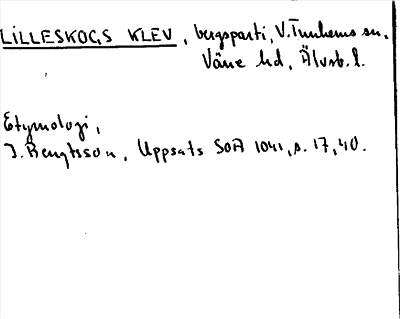 LILLESKOGS KLEV, bergsparti, V. Tunhems sn,
Väne hd, Älvsb. l.
Etymologi,
J. Bengtsson, Uppsats SOA 1041, s. 17, 40.